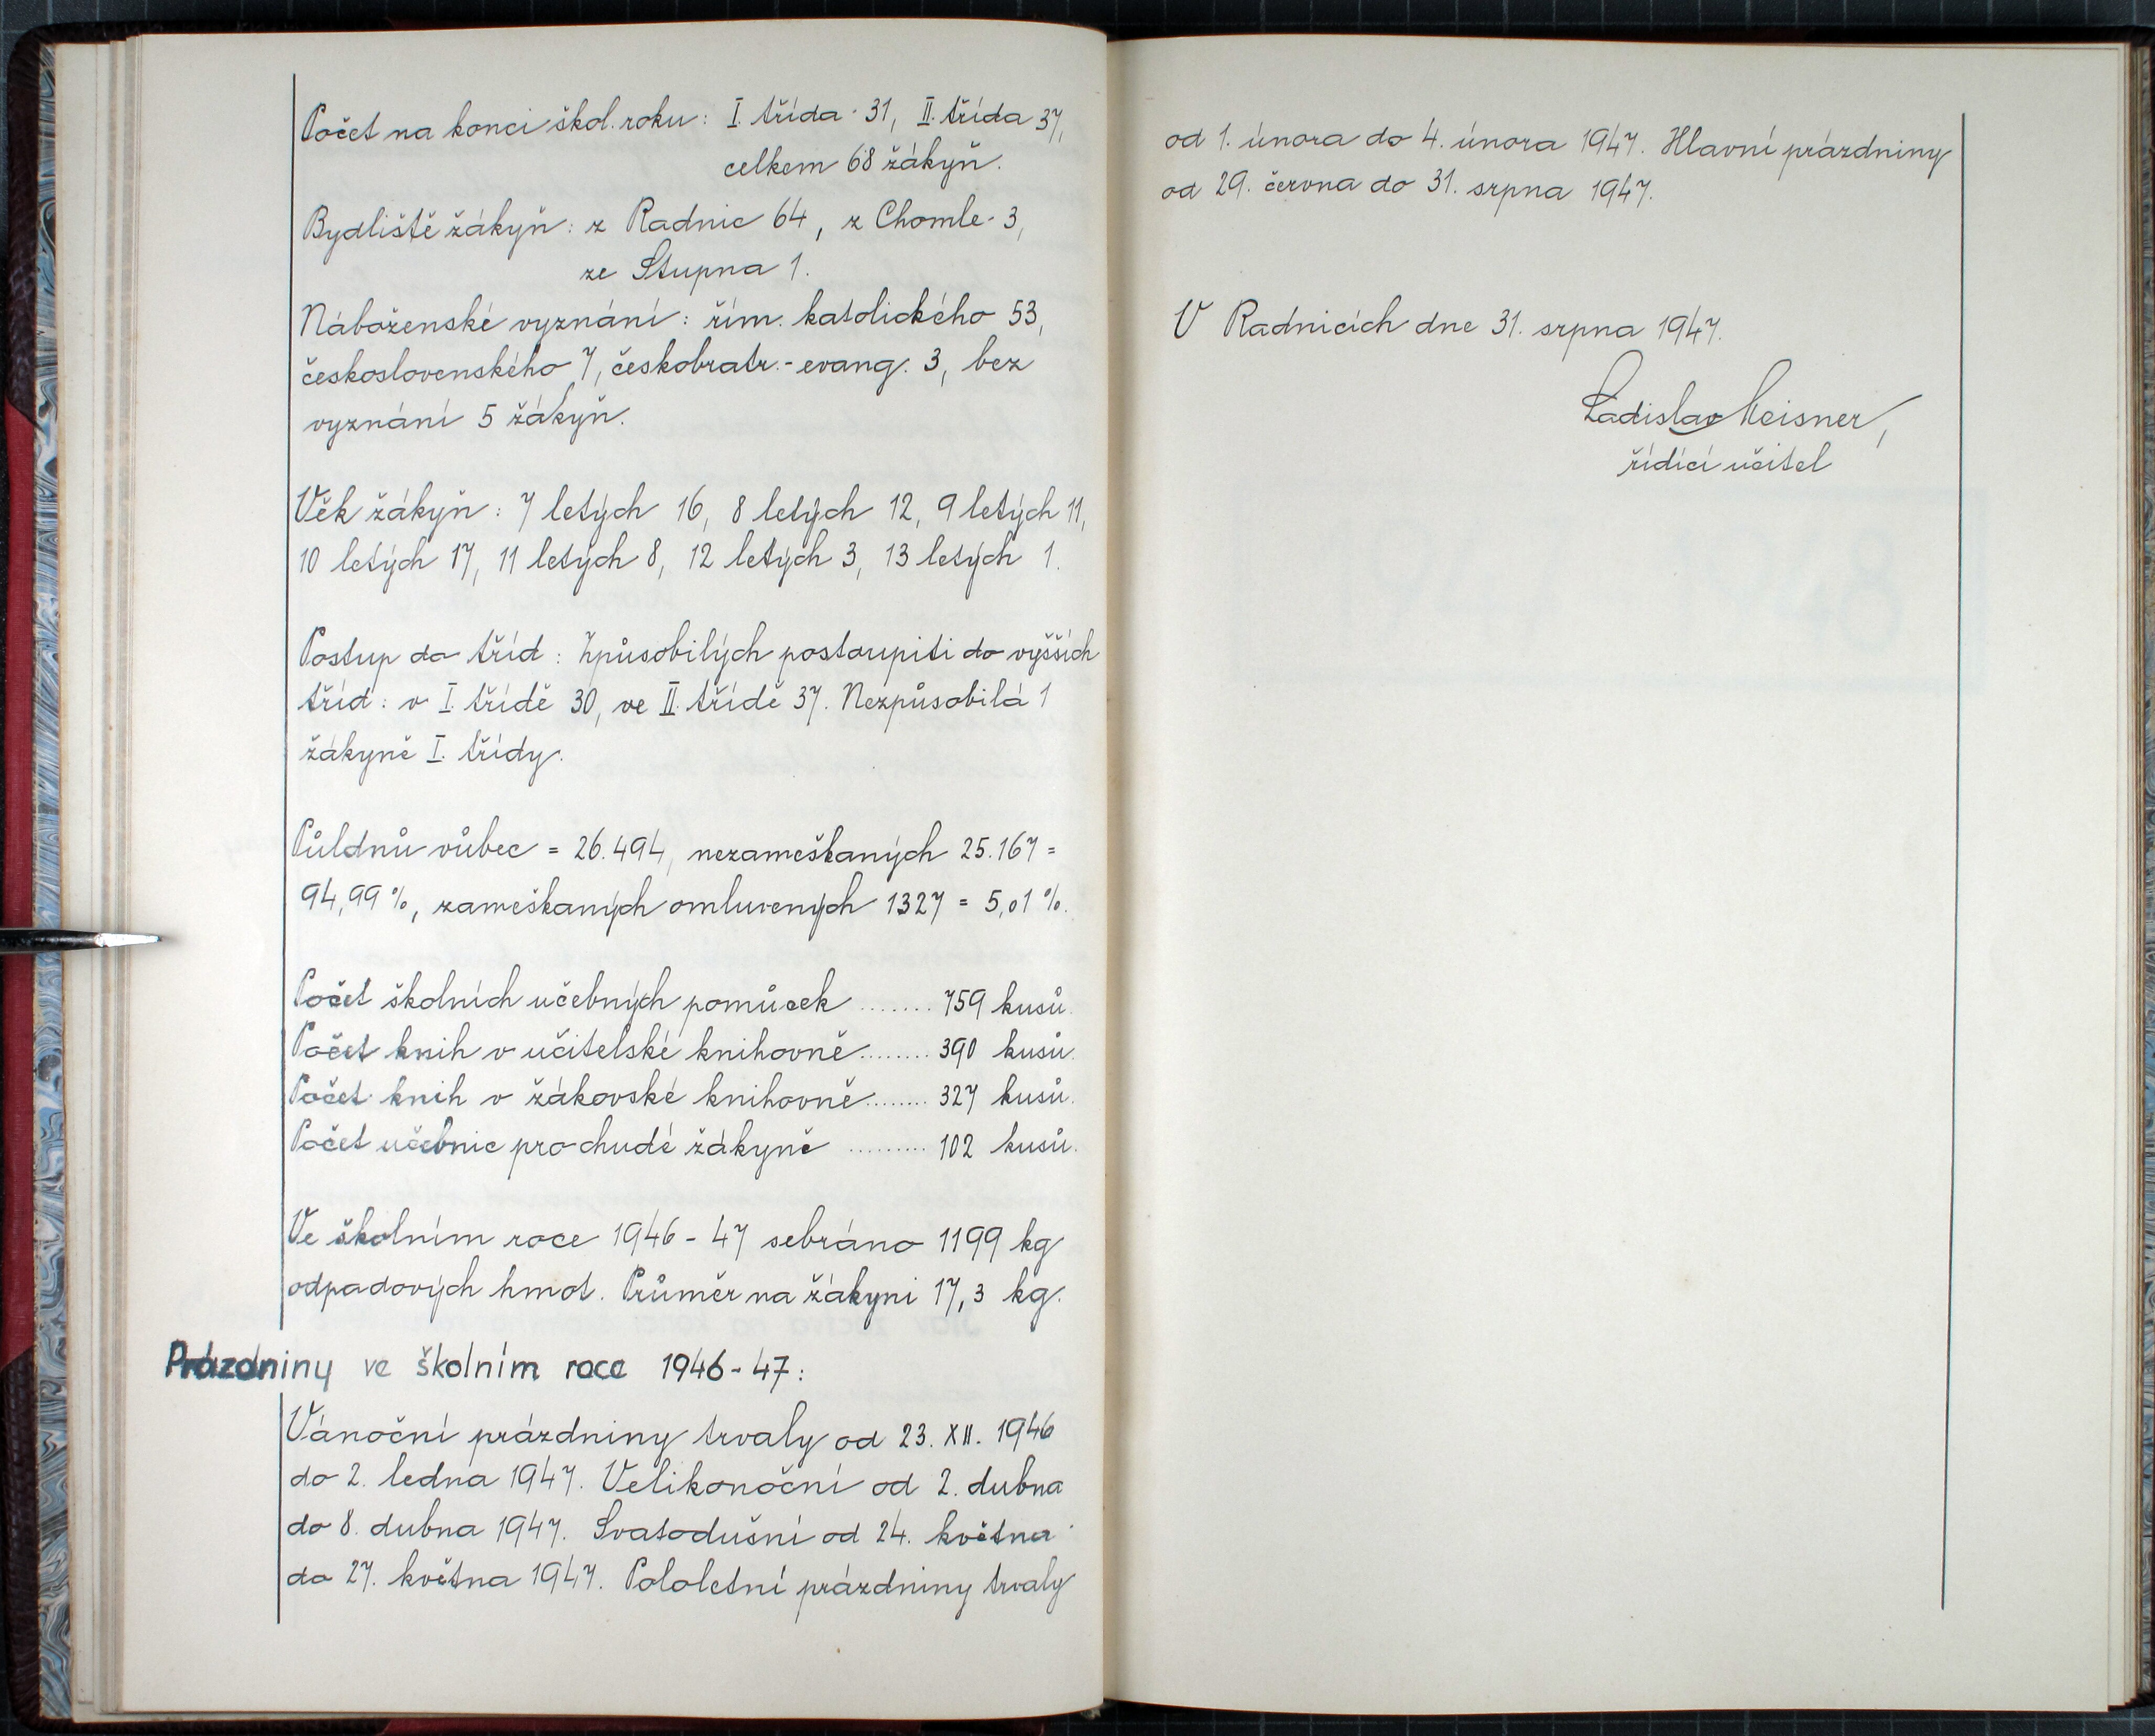 Počet na konci škol. roku: I. třída 31, II. třída 37,
celkem 68 žákyň.
Bydliště žákyň: z Radnic 64, z Chomle 3,
ze Stupna 1.
Náboženské vyznání: řím. katolického 53,
československého 7, českobratr.-evang. 3, bez
vyznání 5 žákyň.
Věk žákyň: 7 letých 16, 8 letých 12, 9 letých 11,
10 letých 17, 11 letých 8, 12 letých 3, 13 letých 1.
Postup do tříd: Způsobilých postoupiti do vyšších
tříd: v I. třídě 30, ve II. třídě 37. Nezpůsobilá 1
žákyně I. třídy.
Půldnů vůbec = 26.494, nezameškaných 25.167 =
94,99 %, zameškaných omluvených 1327 = 5,01 %.
Počet školních učebných pomůcek ....... 759 kusů.
Počet knih v učitelské knihovně ........ 390 kusů.
Počet knih v žákovské knihovně ........ 327 kusů.
Počet učebnic pro chudé žákyně ......... 102 kusů.
Ve školním roce 1946 - 47 sebráno 1199 kg
odpadových hmot. Průměr na žákyni 17,3 kg.
Prázdniny ve školním roce 1946 - 47:
Vánoční prázdniny trvaly od 23. XII. 1946
do 2. ledna 1947. Velikonoční od 2. dubna
do 8. dubna 1947. Svatodušní od 24. května
do 27. května 1947. Pololetní prázdniny trvaly
od 1. února do 4. února 1947. Hlavní prázdniny
od 29. června do 31. srpna 1947.
V Radnicích dne 31. srpna 1947.
Ladislav Meisner,
řídící učitel